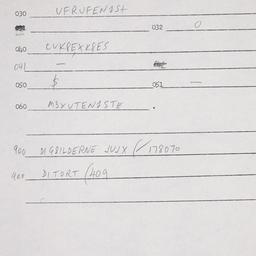 030 VFRVFENDST
032 0
040 CVKPEXKPES
041 —
050 $
051 —
060 MBXUTENDSTE
900 DIGBILDERNE JVJX (/178070
900 DITORT (409